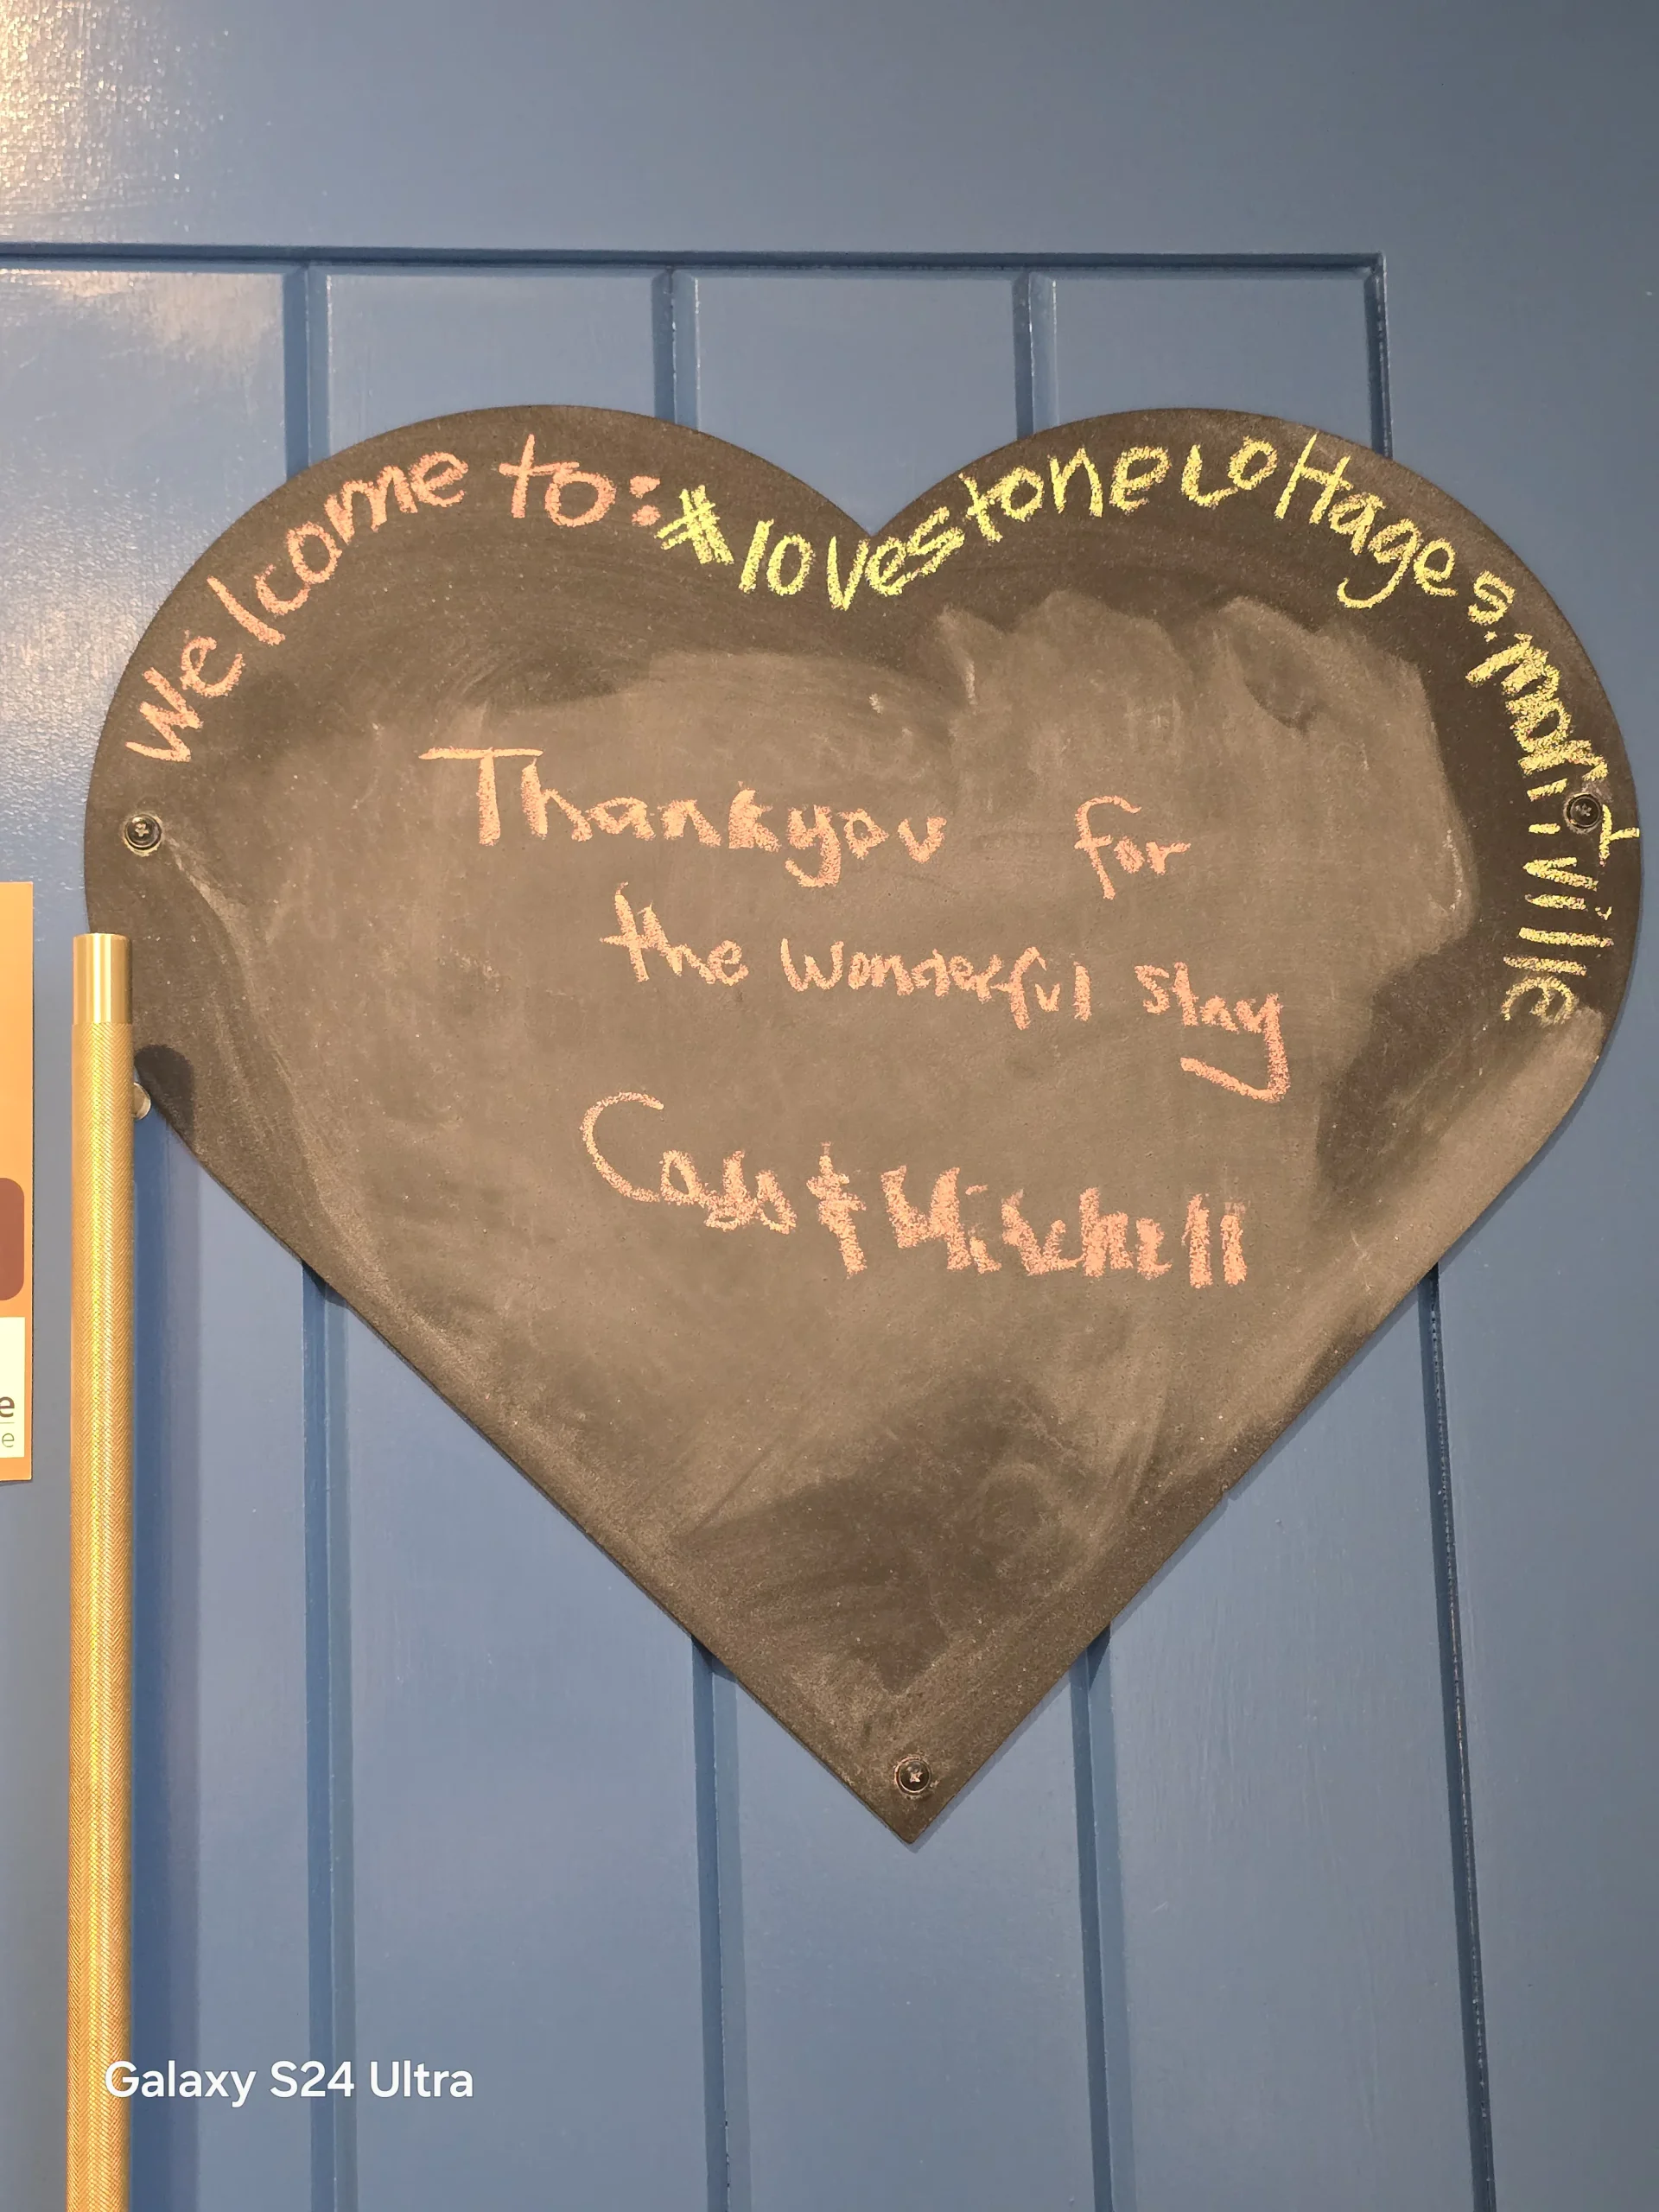 Welcome to: #lovestonecottages.morriville
Thankyou for
the wonderful stay
Cass & Mitchell
e
Galaxy S24 Ultra